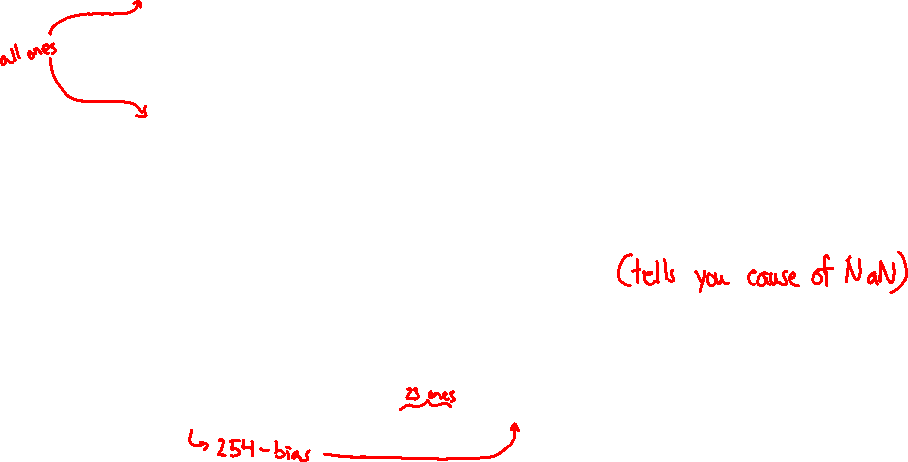 all ones
(tells you cause of NaN)
23 ones
↳ 254-bias